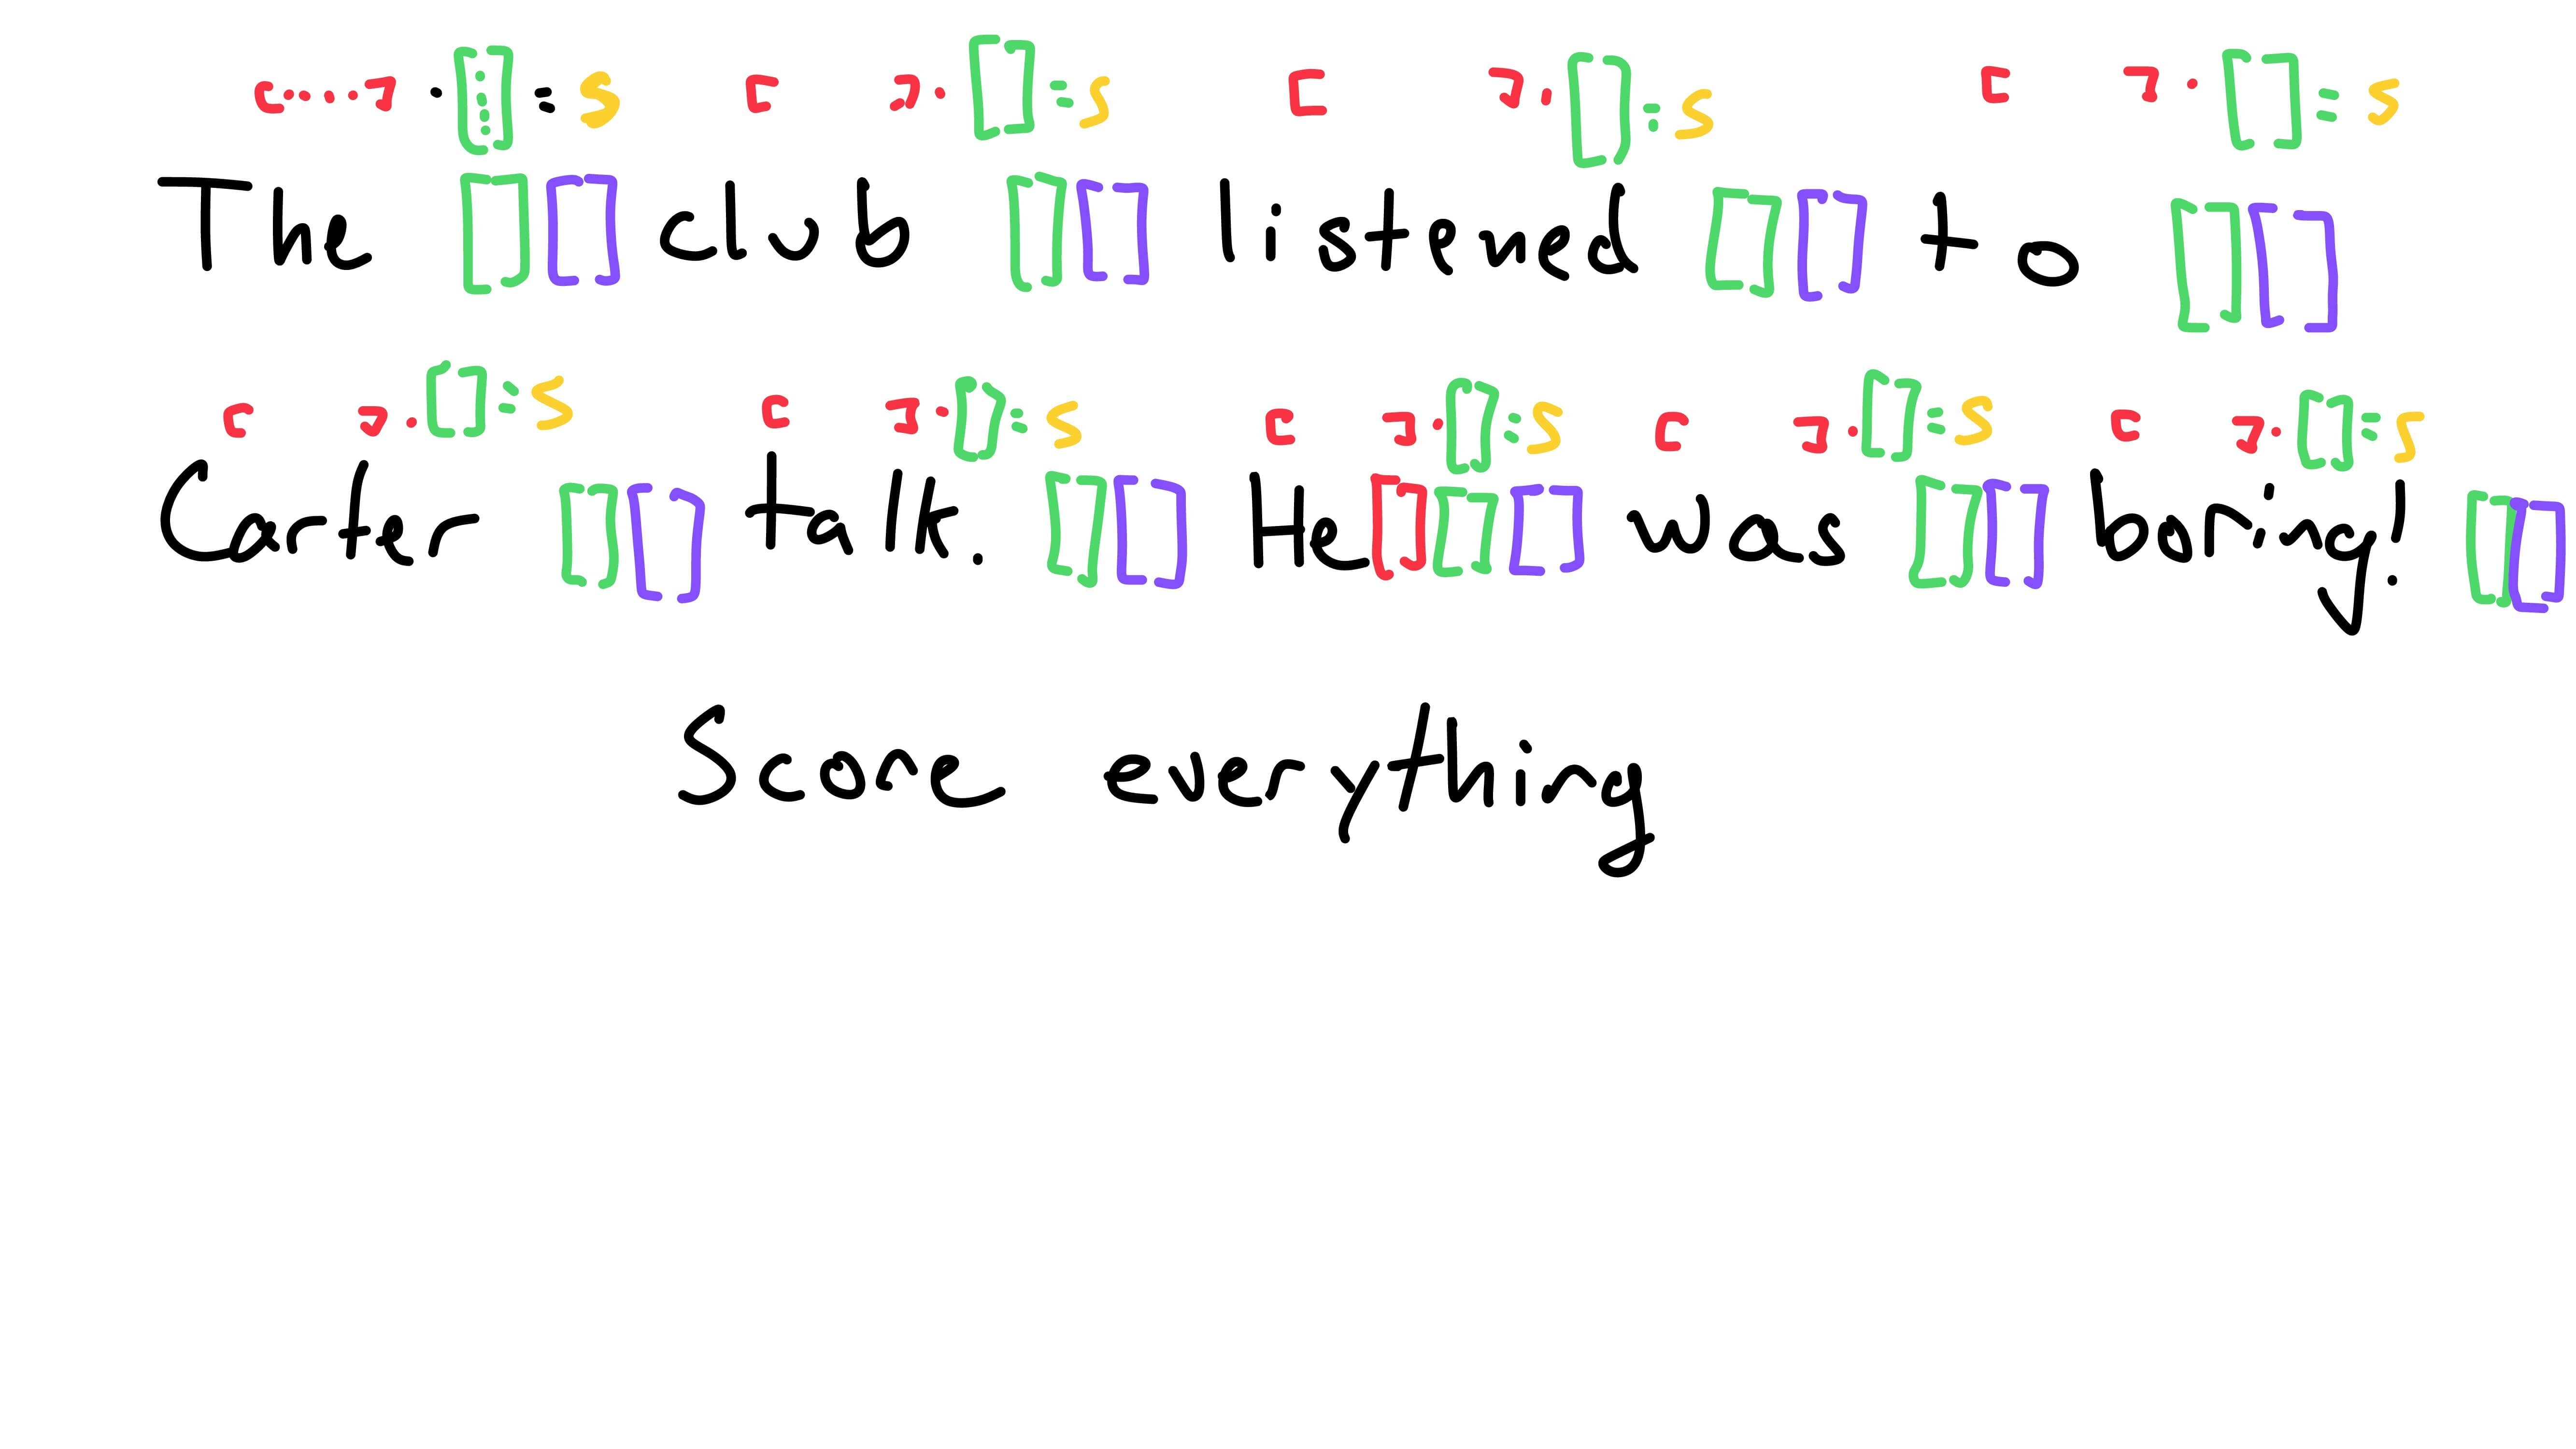 [....] · [⋮] = S [ ] · [ ] = S [ ] · [ ] = S [ ] · [ ] = S
The [ ] [ ] club [ ] [ ] listened [ ] [ ] to [ ] [ ]
[ ] · [ ] = S [ ] · [ ] = S [ ] · [ ] = S [ ] · [ ] = S [ ] · [ ] = S
Carter [ ] [ ] talk. [ ] [ ] He [ ] [ ] [ ] was [ ] [ ] boring! [ ] [ ]
Score everything